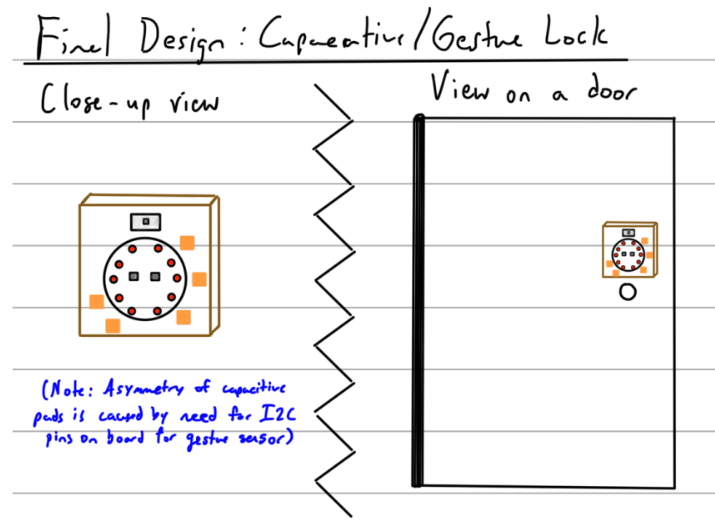 Final Design: Capacative/Gesture Lock
Close-up view
View on a door
(Note: Asymmetry of capacitive
pads is caused by need for I2C
pins on board for gesture sensor)